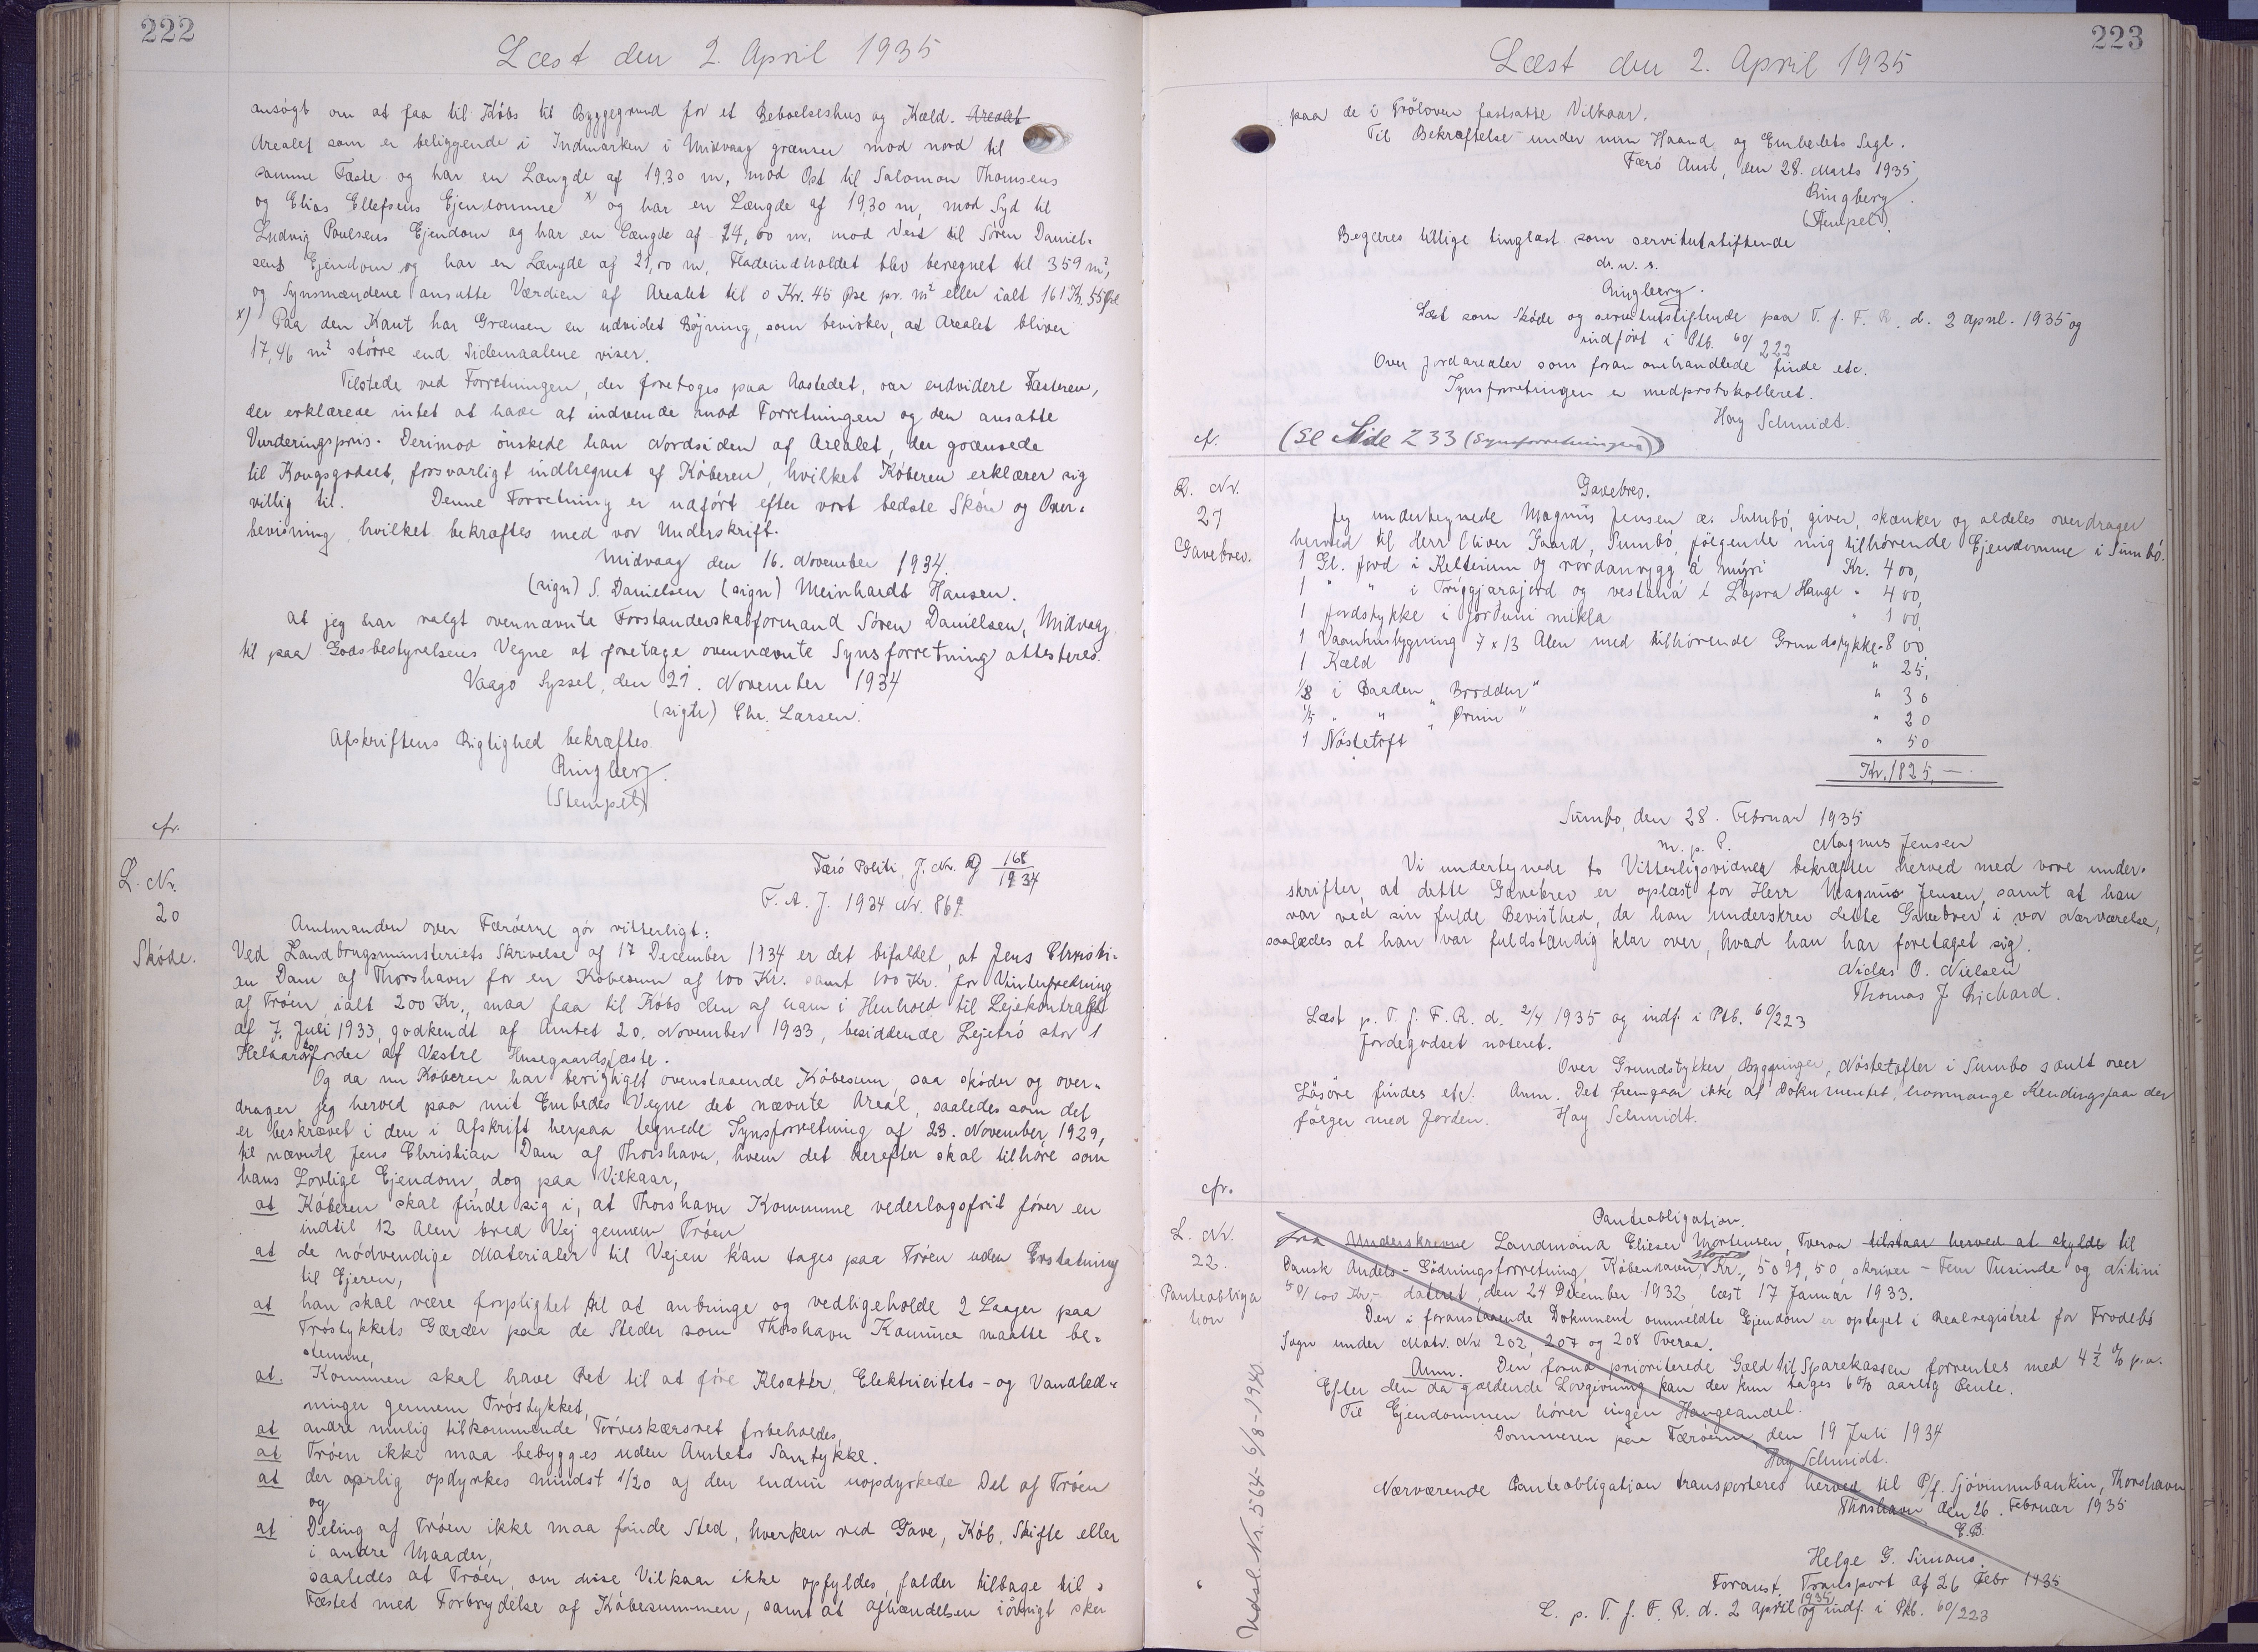 222
Læst den 2. April 1935
ansøgt om at faa til Købs til Byggegrund for et Beboelseshus og Kæld. Arealet
Arealet som er beliggende i Indmarken i Midvaag grænser mod nord til
samme Fæste og har en Længde af 19.30 m, mod Øst til Salomon Thomsens
og Elias Ellefsens Ejendomme x) og har en Længde af 19,30 m, mod Syd til
Ludvig Poulsens Ejendom og har en Længde af 24,00 m. mod Vest til Sören Daniel-
sens Ejendom og har en Længde af 21,00 m, Fladeindholdet blev beregnet til 359 m²,
og Synsmændene ansatte Værdien af Arealet til 0 Kr. 45 Øre pr. m² eller ialt 161 Kr. 55 Øre
x) Paa den Kant har Grænsen en udvidet Böjning, som bevirker, at Arealet bliver
17,46 m² större end Sidemaalene viser.
Tilstede ved Forretningen, der foretoges paa Aastedet, var endvidere Fæsteren,
der erklærede intet at have at indvende mod Forretningen og den ansatte
Vurderingspris. Derimod önskede han Nordsiden af Arealet, der grænsede
til Kongsgodset, forsvarligt indhegnet af Köberen, hvilket Köberen erklærer sig
villig til. Denne Forretning er udfört efter vort bedste Skön og Over-
bevisning hvilket bekræftes med vor Underskrift.
Midvaag den 16. November 1934.
(sign) S. Danielsen (sign) Meinhardt Hansen.
at jeg har valgt ovennævnte Forstanderskabsformand Sören Danielsen, Midvaag
til paa Godsbestyrelsens Vegne at foretage ovennævnte Synsforretning attesteres.
Vaagø Syssel, den 21. November 1934
(sign) Chr. Larsen.
Afskriftens Rigtighed bekræftes.
Ringberg.
(Stempel)
cfr.
L. Nr.
20
Sköde.
Færö Politi, J. Nr. 168/1934
F. A. J. 1934 Nr. 869.
Amtmanden over Færöerne gör vitterligt:
Ved Landbrugsministeriets Skrivelse af 17 December 1934 er det bifaldet, at Jens Christi-
an Dam af Thorshavn for en Köbesum af 100 Kr. samt 100 Kr. for Vinterfredning
af Tröen, ialt 200 Kr., maa faa til Købs den af ham i Henhold til Lejekontrakt
af 7. Juli 1933, godkendt af Amtet 20. November 1933, besiddende Lejetrö stor 1
af Vestre Husegaardsfæste.
Og da nu Köberen har berigtiget ovenstaaende Köbesum, saa sköder og over-
drager jeg herved paa mit Embedes Vegne det nævnte Areal, saaledes som det
er beskrevet i den i Afskrift herpaa tegnede Synsforretning af 23. November 1929,
til nævnte Jens Christian Dam af Thorshavn, hvem det herefter skal tilhöre som
hans Lovlige Ejendom, dog paa Vilkaar,
at Köberen skal finde sig i, at Thorshavn Kommune vederlagsfrit förer en
indtil 12 Alen bred Vej gennem Tröen
at de nödvendige Materialer til Vejen kan tages paa Tröen uden Erstatning
til Ejeren,
at han skal være forpligtet til at anbringe og vedligeholde 2 Laager paa
Tröstykkets Gærder paa de Steder som Thorshavn Kommune maatte be-
stemme,
at Kommen skal have Ret til at före Kloaker, Elektricitets- og Vandled-
ninger gennem Tröstykket,
at andre mulig tilkommende Törveskærsret forbeholdes,
at Tröen ikke maa bebygges uden Amtets Samtykke.
at der aarlig opdyrkes mindst 1/20 af den endnu uopdyrkede Del af Tröen
og
at Deling af Tröen ikke maa finde Sted, hverken ved Gave, Köb, Skifte eller
i andre Maader,
saaledes at Tröen, om disse Vilkaar ikke opfyldes, falder tilbage til
Fæstet med Forbrydelse af Köbesummen, samt at afhændelsen iövrigt sker
223
Læst den 2. April 1935
paa de i Tröloven fastsatte Vilkaar.
Til Bekræftelse under min Haand og Embedets Segl.
Færö Amt, den 28. Marts 1935
Ringberg.
(Stempel).
Begæres tillige tinglæst som servitutstiftende
d. u. s.
Ringberg.
Læst som Sköde og servitutstiftende paa T. f. F. R. d. 2 April. 1935 og
indfört i Ptb. 60/222
Over Jordarealer som foran omhandlede finde etc.
Synsforretningen er medprotokolleret.
Hay Schmidt.
cf. (Se Side 233 (Synsforretningen))
L. Nr.
27
Gavebrev.
Gavebrev.
Jeg undertegnede Magnus Jensen a. Sumbö, giver, skænker og aldeles overdrager
herved til Herr Oliver Gaard, Sumbö, fölgende mig tilhörende Ejendomme i Sumbö.
1 Gl. Jord i Kelterum og nordanrygg á Mýri Kr. 400,
1 " " i Triggjarajord og vestaná í Lopra Hauge " 400,
1 Jordstykke i Görðuni mikla " 100,
1 Vaanhusbygning 7 x 13 Alen med tilhörende Grundstykke " 800,
1 Kæld " 25,
1/8 i Baaden "Broddur" " 30
1/5 " " "Ørnin" " 20
1 Nöstetoft " 50
Kr. 1825,—
Sumbø, den 28. Februar 1935
m. p. P. Magnus Jensen
Vi undertegnede to Vitterligsvidner bekræfter herved med vore under-
skrifter, at dette Gavebrev er oplæst for Herr Magnus Jensen, samt at han
var ved sin fulde Bevisthed, da han underskrev dette Gavebrev i vor Nærværelse,
saaledes at han var fuldstændig klar over, hvad han har foretaget sig.
Niclas O. Nielsen
Thomas J Richard.
Læst p. T. f. F. R. d. 2/4 1935 og indf. i Ptb. 60/223
Jordegodset noteret.
Over Grundstykker, Bygninger, Nöstetofter i Sumbø samt over
Lösöre findes etc. Anm. Det fremgaar ikke af Dokumentet, hvormange Hændingsfaar der
fölger med Jorden. Hay Schmidt.
cfr.
L. Nr.
22.
Panteobliga
tion
Udsl. Nr. 564- 6/8-1940
Panteobligation.
fra Underskrevne Landmand Elieser Mortensen, Tveraa tilstaar herved at skylde til
Dansk Andels-Gödningsforretning, København, stor Kr., 5099,50, skriver - Fem Tusinde og Nitini
50/100 Kr,- dateret, den 24 December 1932 læst 17 Januar 1933.
Den i foranstaaende Dokument ommeldte Ejendom er optaget i Realregistret for Frodebö
Sogn under Matr. Nr. 202, 207 og 208 Tveraa.
Anm. Den forud prioriterede Gæld til Sparekassen forrentes med 4½ % p.a.
Efter den da gældende Lovgivning kan der kun tages 6% aarlig Rente.
Til Ejendommen hörer ingen Haugeandel.
Dommeren paa Færöerne, den 19 Juli 1934
Hay Schmidt.
Nærværende Panteobligation transporteres herved til P/f. Sjóvinnubankin, Thorshavn
Thorshavn den 26. Februar 1935
E.B.
Helge G. Simans.
Foranst. Transport af 26 Febr 1935
L. p. T. f. F. R. d. 2 April 1935 og indf. i Ptb. 60/223